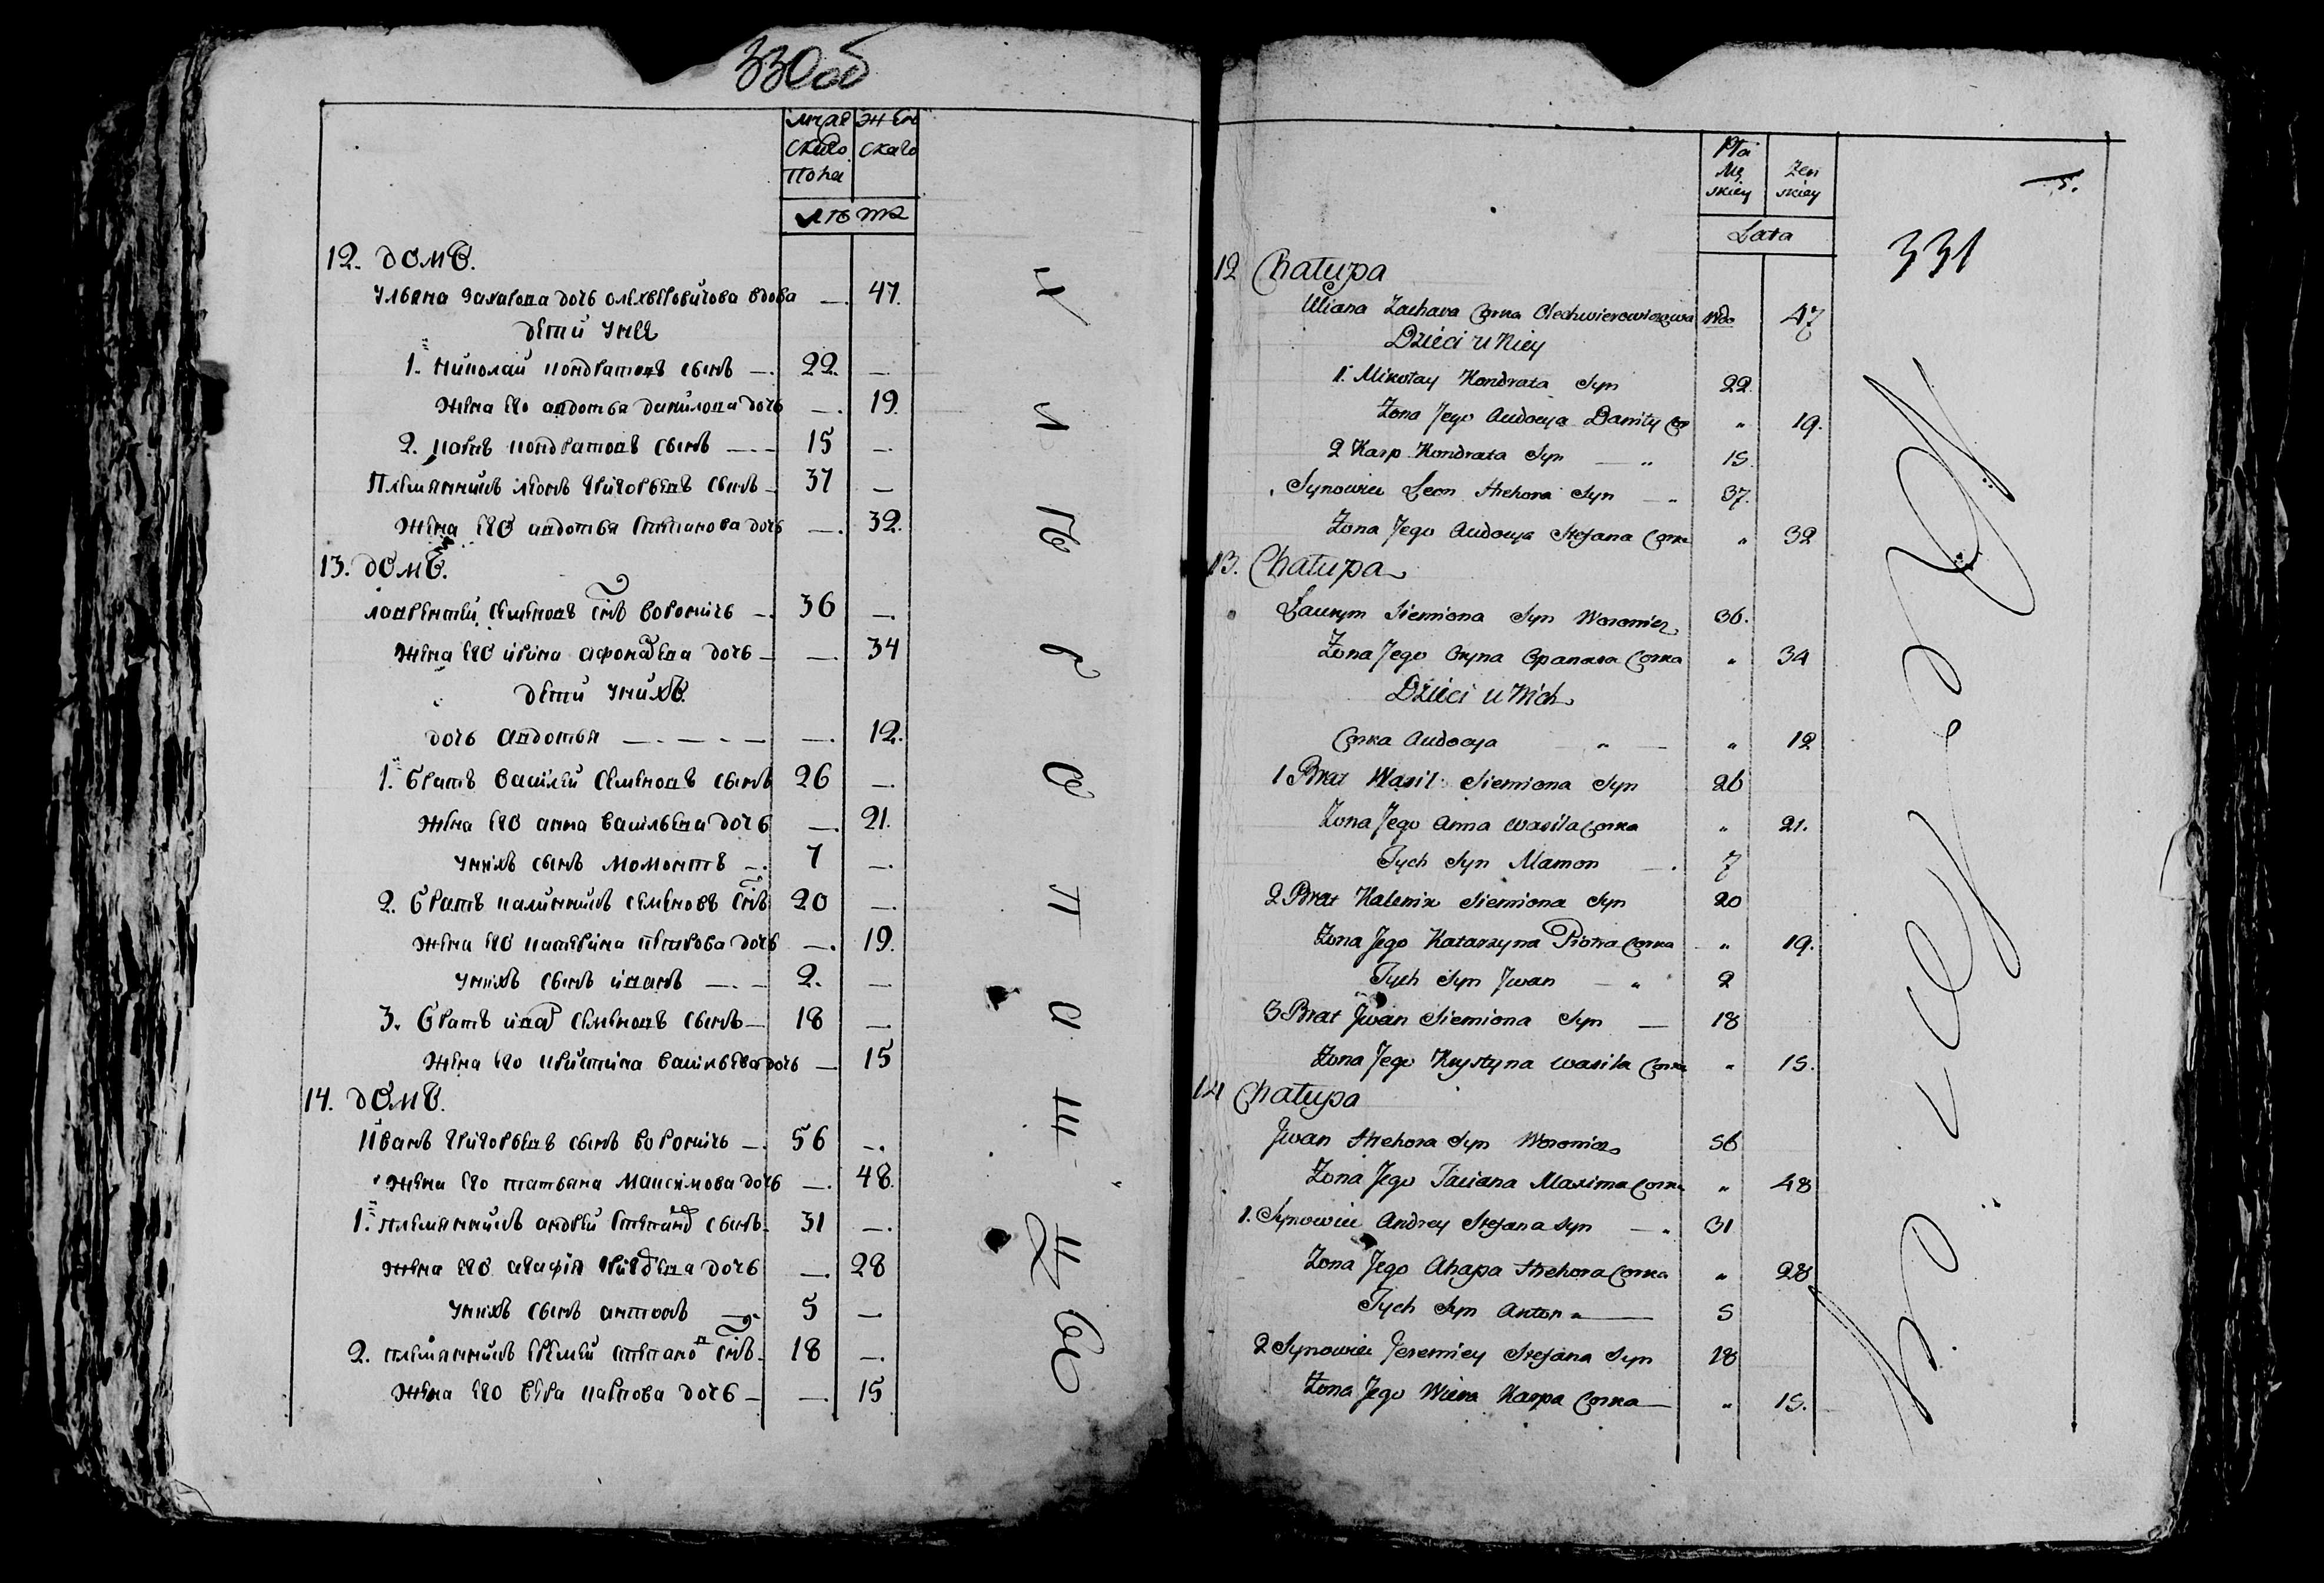 330об
мужескаго пола
женскаго
лѣта
12. домъ.
Ульяна Захарова дочь Олехверовичова вдова — 47.
дети у нее
1. Николай Кондратовъ сынъ — 22. —
жена его авдотья данилова дочь — 19.
2. Карпъ Кондратовъ сынъ — 15 —
Племянникъ леонъ Григорьевъ сынъ — 37 —
жена его авдотья Степанова дочь — 32.
13. домъ.
лаврентей Семеновъ снъ Вороничь — 36 —
жена его ирина афонасьева дочь — 34
дети у нихъ
дочь авдотья — 12.
1. братъ Василей Семеновъ сынъ 26 —
жена его анна Васильева дочь — 21.
у нихъ сынъ момонтъ — 7 —
2. братъ Калинникъ Семеновъ снъ 20 —
жена его Катерина Петрова дочь — 19.
у нихъ сынъ иванъ — 2. —
3. братъ иванъ Семеновъ сынъ — 18 —
жена его Кристина Васильева дочь — 15
14. домъ.
Иванъ Григорьевъ сынъ Вороничь — 56 —
жена его татьяна Максимова дочь — 48.
1. племянникъ андрей Степановъ сынъ 31 —
жена его агафiя Григорьева дочь — 28
у нихъ сынъ антонъ — 5 —
2. племянникъ Еремей Степановъ снъ 18 —
жена его вера Карпова дочь — 15
331
Płci Męskiey
Żeńskiey
Lata
12 Chałupa
Uliana Zachara Corka Olechwierowiczowa wdo 47
Dzieci u Niey
1. Mikołay Kondrata Syn 22.
Żona Jego Audocya Daniły Cor " 19.
2 Karp Kondrata Syn — " 15.
Synowiec Leon Hrehora Syn — " 37.
Żona Jego Audocya Stefana Corka " 32
13. Chałupa
Ławryn Siemiona Syn Woronicz 36.
Żona Jego Oryna Opanasa Corka " 34
Dzieci u Nich
Corka Audocya " — " 12
1 Brat Wasil Siemiona Syn 26
Żona Jego Anna Wasila Corka " 21.
Tych Syn Mamon — . 7
2 Brat Kalenik Siemiona Syn 20
Żona Jego Katarzyna Piotra Corka " 19.
Tych Syn Jwan — " 2
3 Brat Jwan Siemiona Syn — 18
Żona Jego Krystyna Wasila Corka " 15.
14 Chałupa
Jwan Hrehora Syn Woronicz 56
Żona Jego Taciana Maxima Corka " 48
1. Synowiec Andrey Stefana Syn — " 31
Żona Jego Ahapa Hrehora Corka " 28
Tych Syn Anton " — 5
2 Synowiec Jeremiey Stefana Syn 18
Żona Jego Wiera Karpa Corka — " 15.